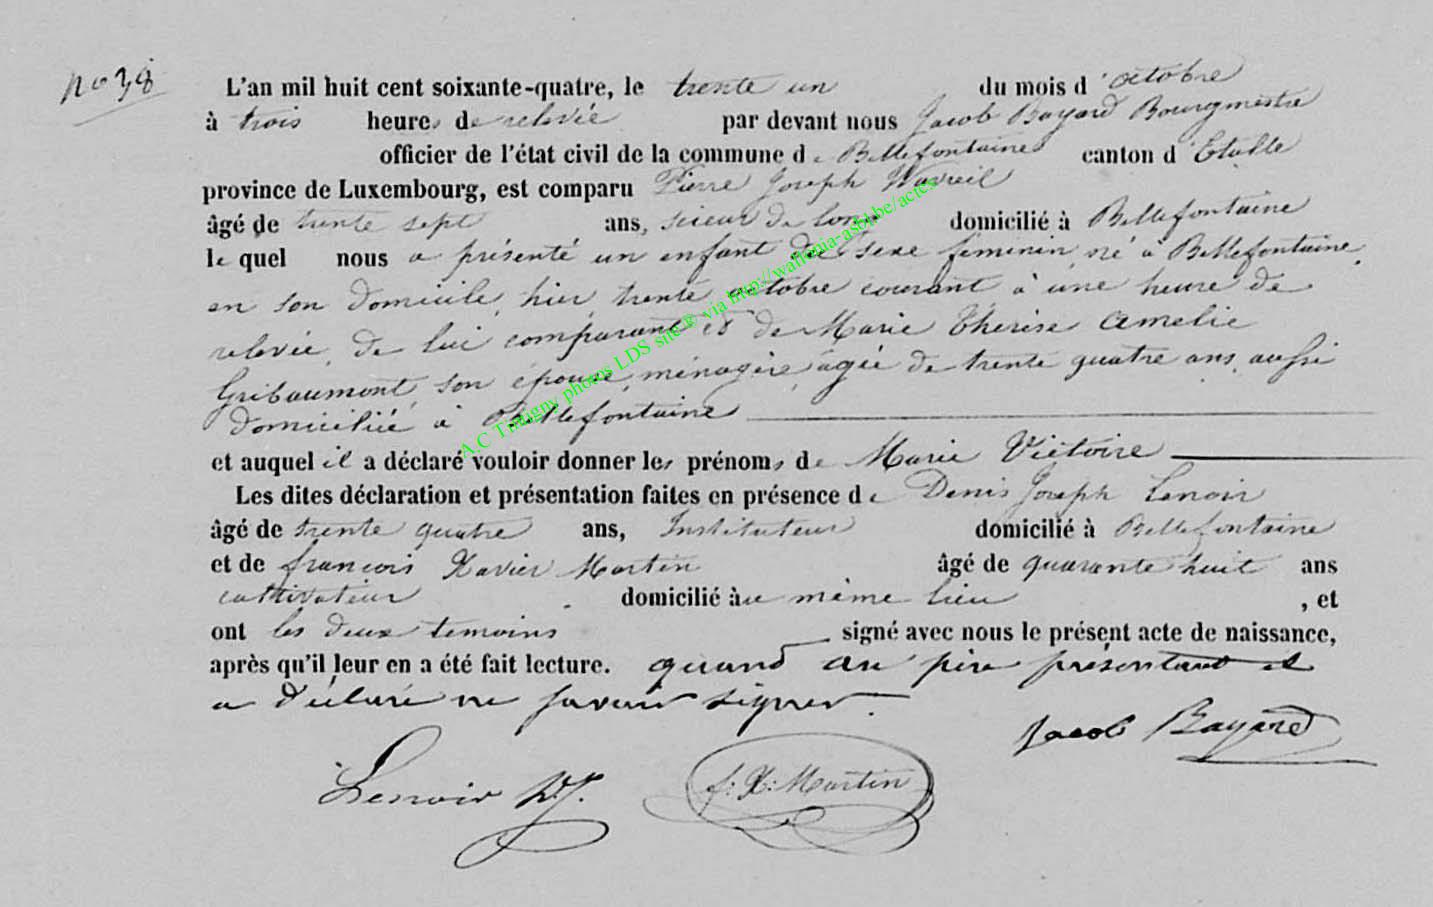 no 38
L'an mil huit cent soixante-quatre, le trente un du mois d'octobre
à trois heures de relevée par devant nous Jacob Bayard Bourgmestre
officier de l'état civil de la commune de Bellefontaine canton d'Etalle
province de Luxembourg, est comparu Pierre Joseph
âgé de trente sept ans, scieur de long domicilié à Bellefontaine
le quel nous a présenté un enfant du sexe féminin né à Bellefontaine,
en son domicile, hier trente octobre courant à une heure de
relevée, de lui comparant et de Marie Thérèse Amelie
Gribaumont son épouse, ménagère âgée de trente quatre ans, aussi
domiciliée à Bellefontaine
et auquel il a déclaré vouloir donner les prénoms de Marie Victoire
Les dites déclaration et présentation faites en présence de Denis Joseph Lenoir
âgé de trente quatre ans, Instituteur domicilié à Bellefontaine
et de françois Xavier Martin âgé de quarante huit ans
cultivateur domicilié au même lieu , et
ont les deux temoins signé avec nous le présent acte de naissance,
après qu'il leur en a été fait lecture. quand au père présentant il
a déclaré ne savoir signer.
Jacob Bayard
Lenoir D. J.
f: X: Martin
A.C Tintigny photos LDS site® via http://wallonia-asbl.be/actes